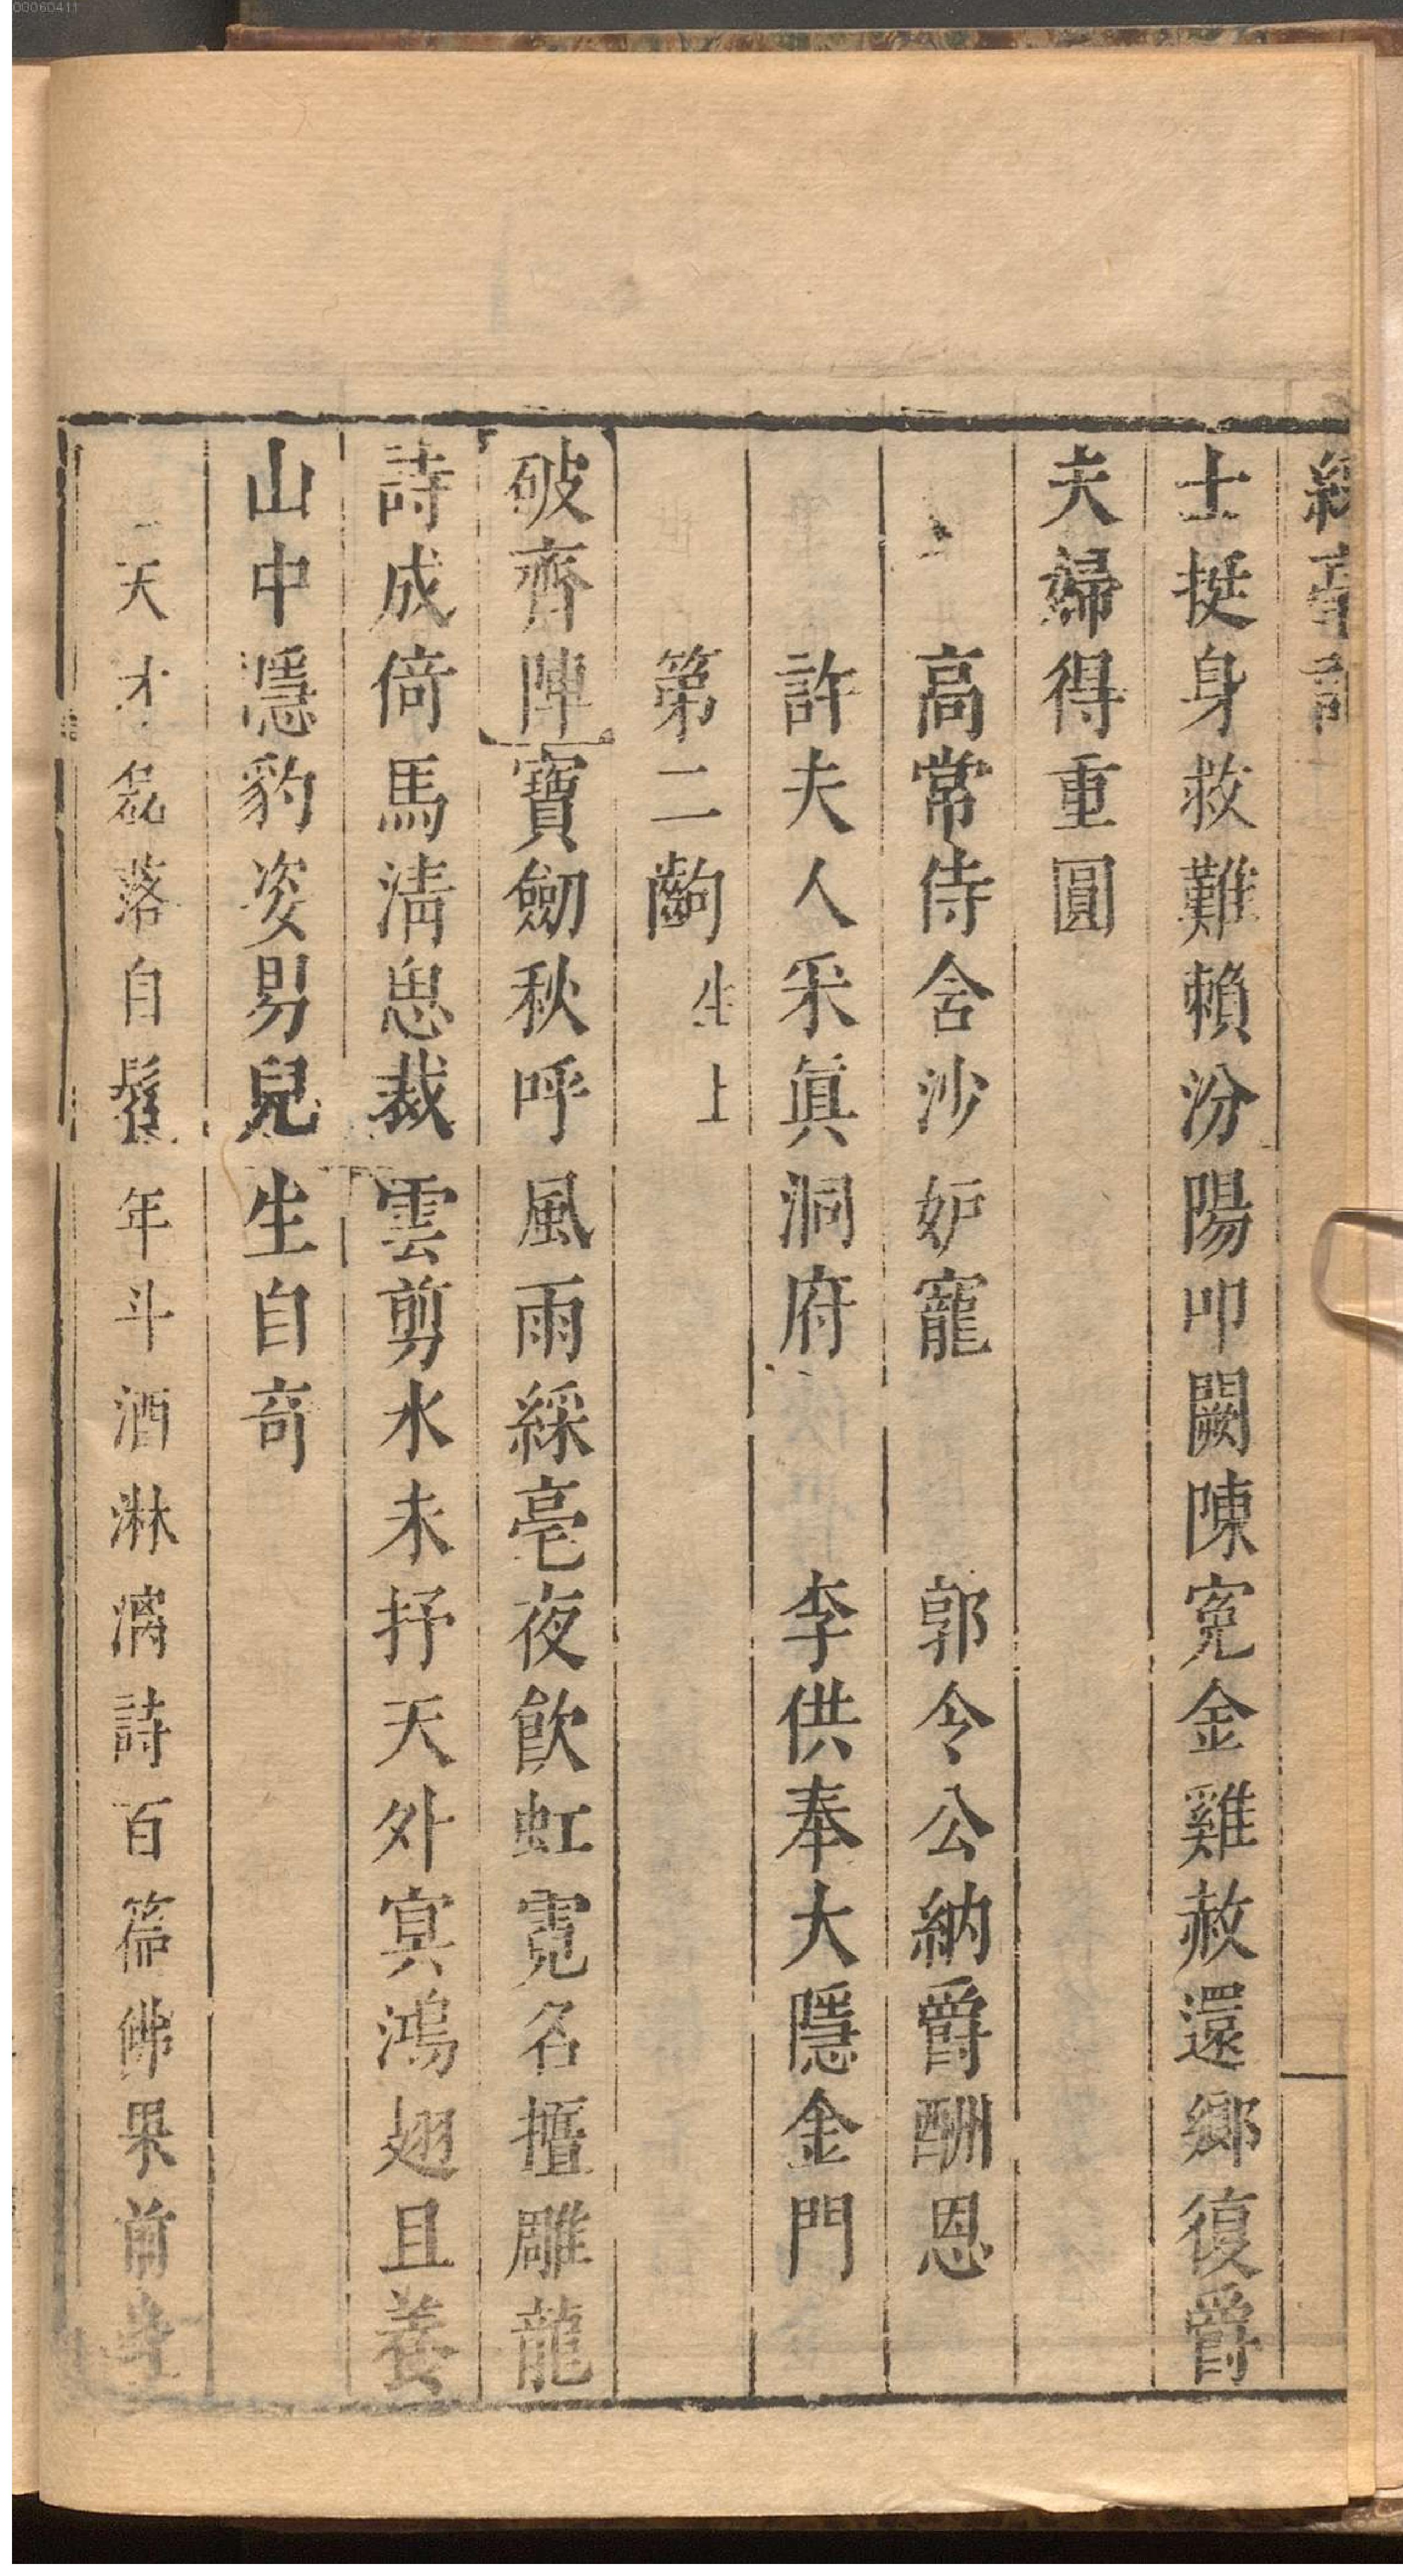 00060411
士挺身救難賴汾陽叩闕陳寃金雞赦還鄉復爵
夫婦得重圓
高常侍含沙妒寵　郭令公納爵酬恩
許夫人采眞洞府　李供奉大隱金門
第二齣　生上
破齊陣　寶劒秋呼風雨綵毫夜飮虹霓名擅雕龍
詩成倚馬淸思裁雲剪水未抒天外㝠鴻翅且養
山中隱豹姿男兒生自奇
天才磊落自髫年斗酒淋漓詩百篇佛果前